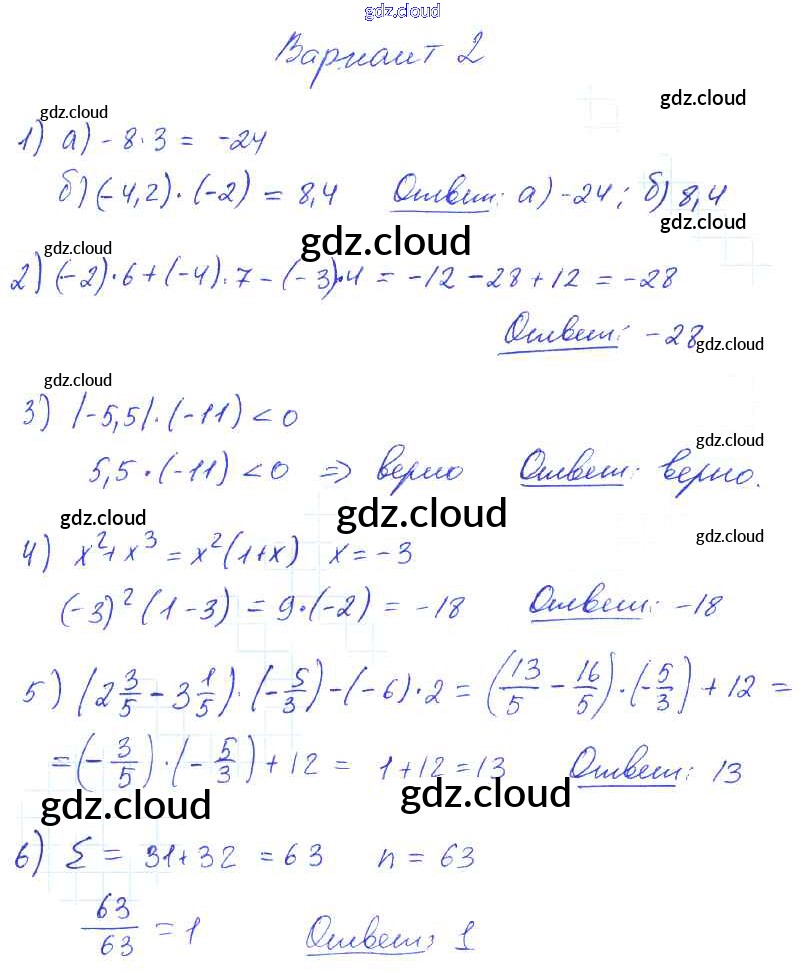 gdz.cloud
Вариант 2
gdz.cloud
gdz.cloud
1) а) -8·3 = -24
б) (-4,2)·(-2) = 8,4 Ответ: а) -24; б) 8,4
gdz.cloud
gdz.cloud
gdz.cloud
2) (-2)·6+(-4)·7-(-3)·4 = -12-28+12 = -28
Ответ: -28
gdz.cloud
gdz.cloud
3) |-5,5|·(-11) < 0
gdz.cloud
5,5·(-11) < 0 ⇒ верно Ответ: верно.
gdz.cloud
gdz.cloud
gdz.cloud
4) x²+x³ = x²(1+x) x = -3
(-3)²(1-3) = 9·(-2) = -18 Ответ: -18
5) (2 3/5 - 3 1/5)·(-5/3)-(-6)·2 = (13/5 - 16/5)·(-5/3)+12 =
= (-3/5)·(-5/3)+12 = 1+12 = 13 Ответ: 13
gdz.cloud
gdz.cloud
6) Σ = 31+32 = 63 n = 63
63/63 = 1 Ответ: 1